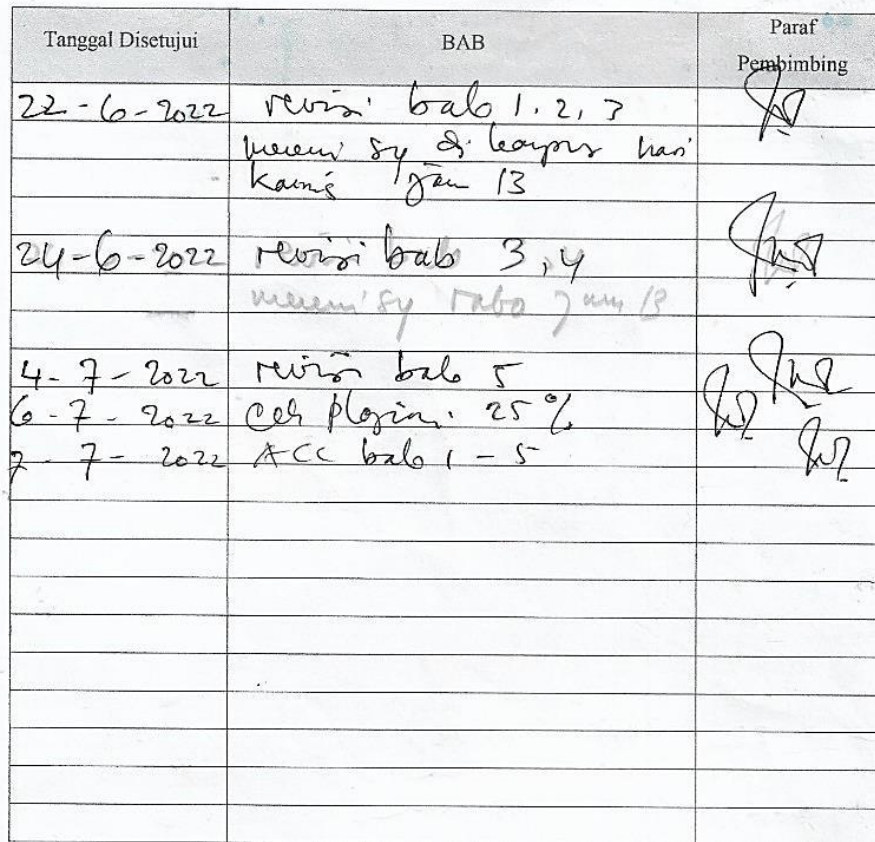 Tanggal Disetujui BAB Paraf Pembimbing
22-6-2022 revisi bab 1, 2, 3
menemui sy di kampus hari
kamis jam 13
24-6-2022 revisi bab 3, 4
menemui sy rabo jam 13
4-7-2022 revisi bab 5
6-7-2022 cek plagiasi 25%
7-7-2022 ACC bab 1-5